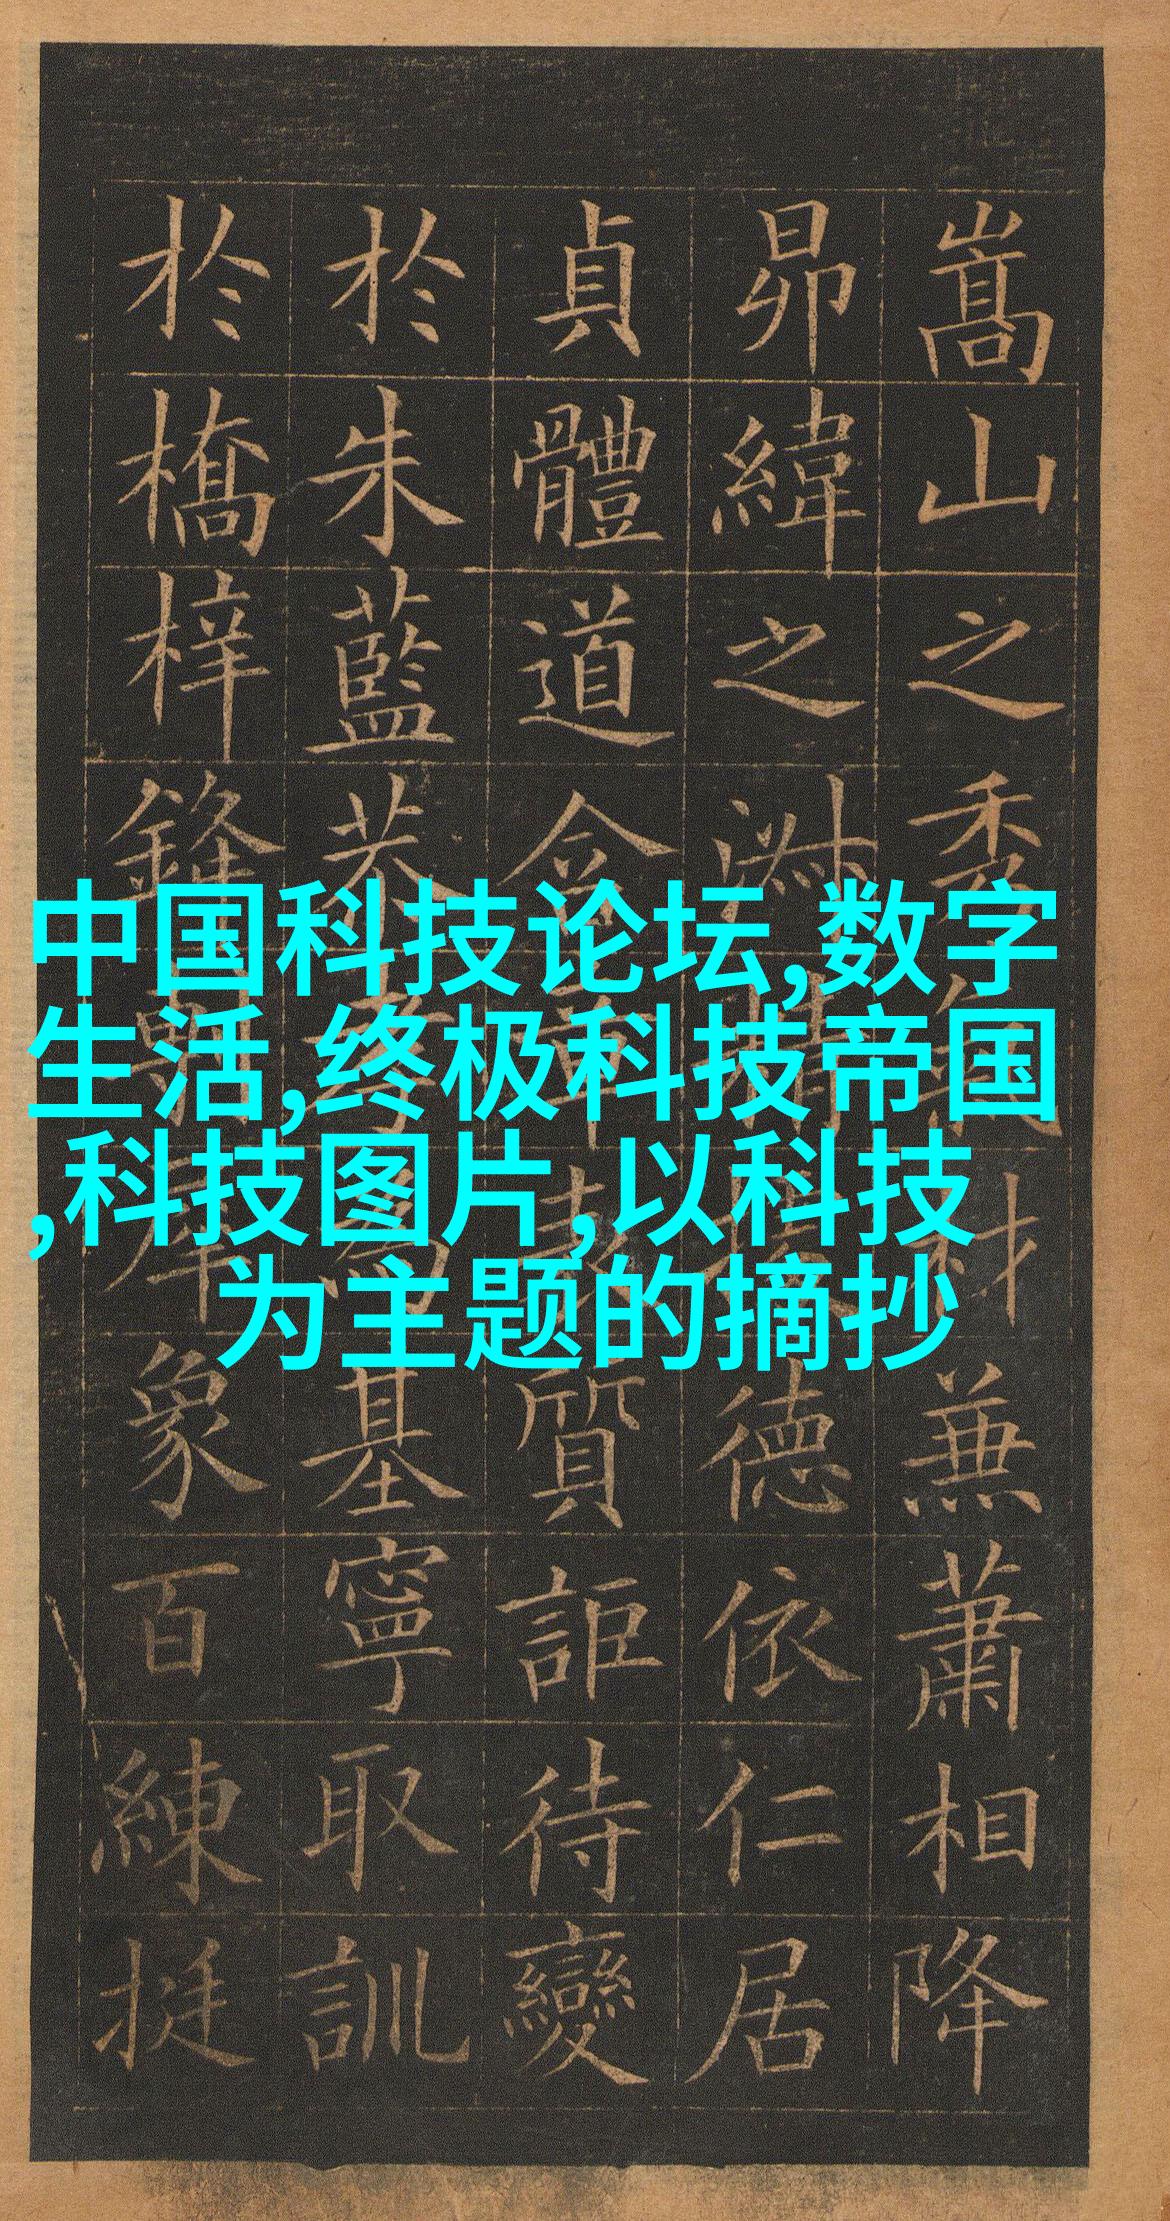 中国科技论坛,数字
生活,终极科技帝国
,科技图片,以科技
为主题的摘抄
嵩山之秀氣材兼蕭相降
昴緯之淑精據德依仁居
貞體道含章表質詎待變
於朱藍恭孝爲基寧取訓
於橋梓鋒犀象百練挺